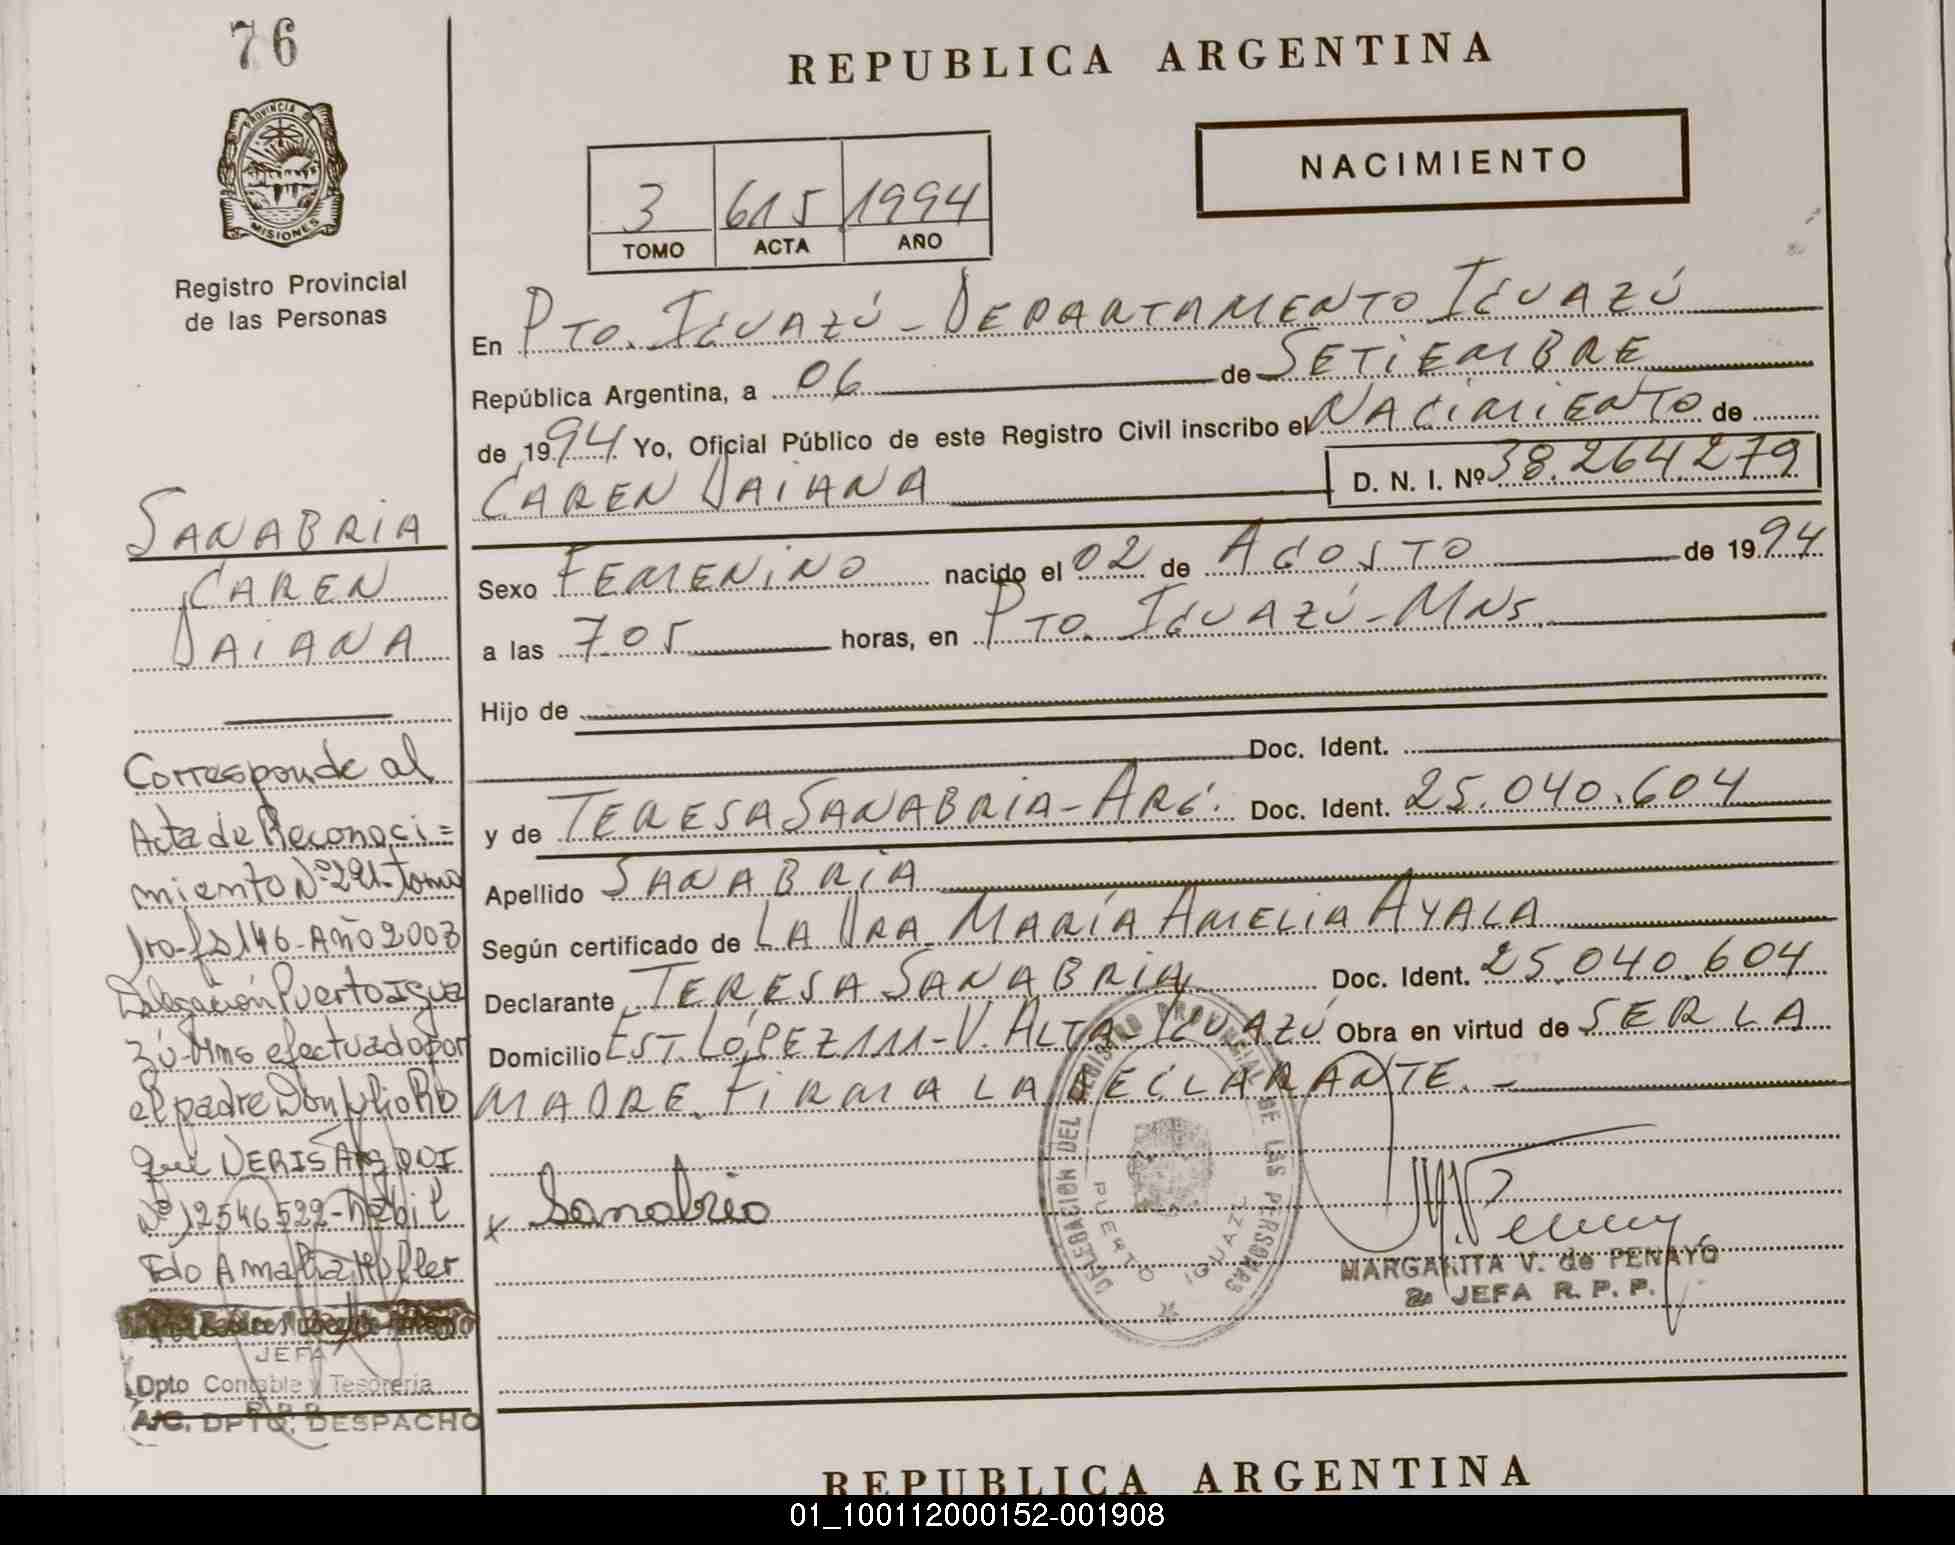 76
PROVINCIA DE
MISIONES
Registro Provincial
de las Personas
SANABRIA
CAREN
DAIANA
Corresponde al
Acta de Reconoci=
miento Nº 291-Tomo
1ro-fº 146-Año 2003
Delegación Puerto Igua
zú-Mns efectuado por
el padre Don Julio Ro
que VERIS Arg DNI
Nº 12546522-habil
Fdo Amalia Muller
JEFA
Dpto Contable y Tesorería
R.P.P.
A/C. DPTO. DESPACHO
REPUBLICA ARGENTINA
NACIMIENTO
3 615 1994
TOMO ACTA AÑO
En PTO. IGUAZÚ - DEPARTAMENTO IGUAZÚ
República Argentina, a 06 de SETIEMBRE
de 1994 Yo, Oficial Público de este Registro Civil inscribo el NACIMIENTO de
CAREN DAIANA D. N. I. Nº 38.264.279
Sexo FEMENINO nacido el 02 de AGOSTO de 1994
a las 7.05 horas, en PTO. IGUAZÚ - MNS.
Hijo de
Doc. Ident.
y de TERESA SANABRIA - ARG. Doc. Ident. 25.040.604
Apellido SANABRIA
Según certificado de LA DRA. MARÍA AMELIA AYALA
Declarante TERESA SANABRIA Doc. Ident. 25.040.604
Domicilio EST. LÓPEZ 111 - V. ALTA IGUAZÚ Obra en virtud de SER LA
MADRE. FIRMA LA DECLARANTE. -
DELEGACION DEL REGISTRO PROVINCIAL DE LAS PERSONAS
PUERTO IGUAZU
x Sanabria
MARGARITA V. de PENAYO
2a JEFA R. P. P.
REPUBLICA ARGENTINA
01_100112000152-001908